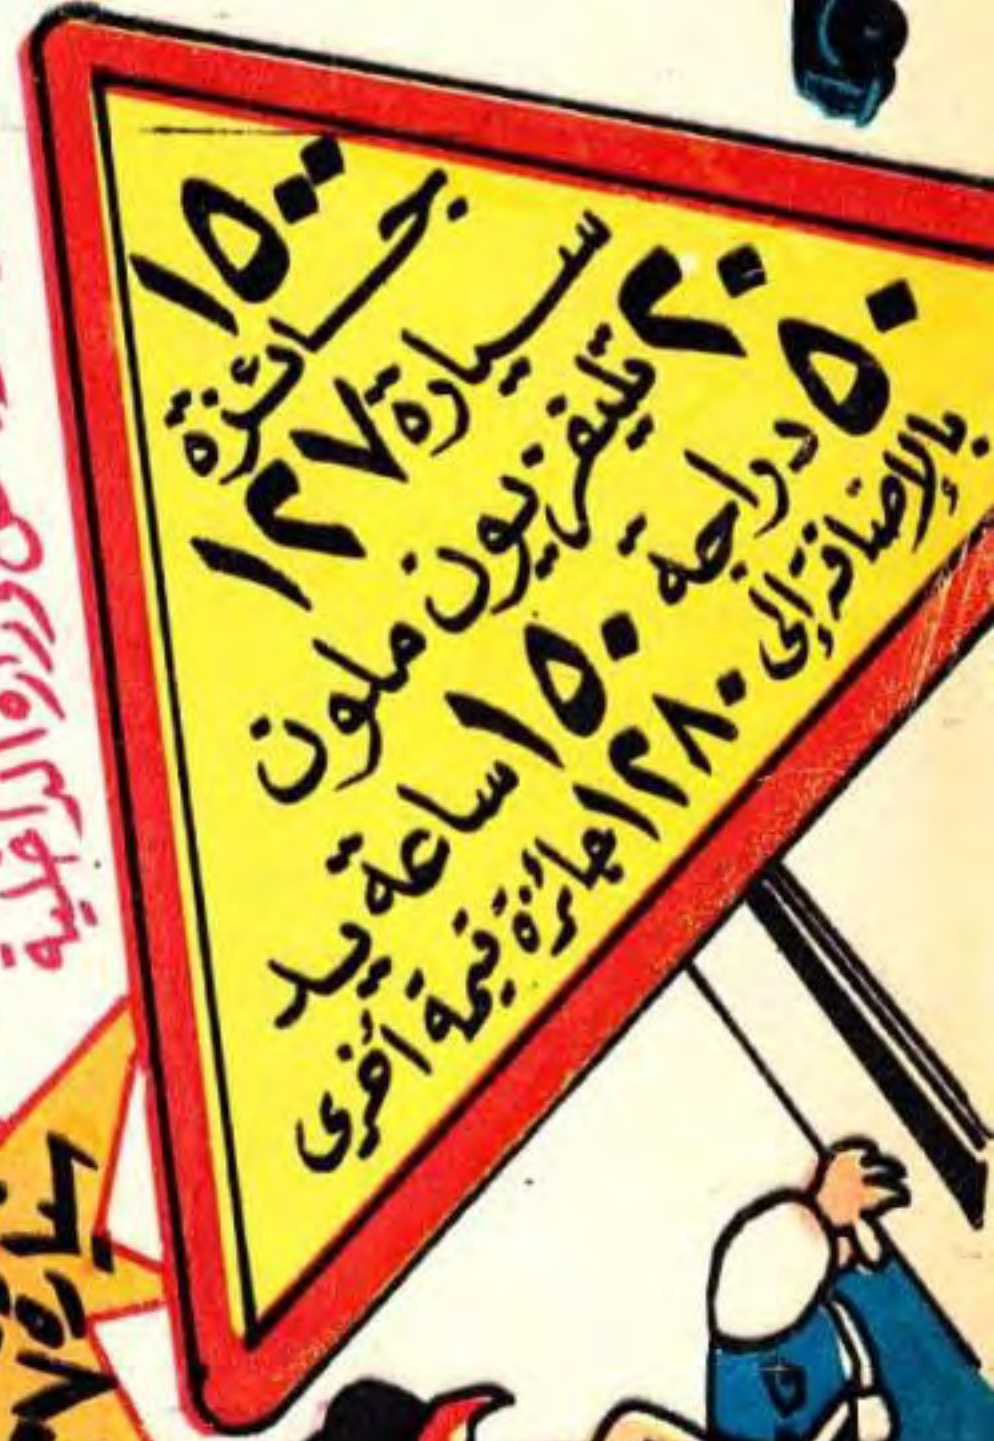 ١٥٠٠
جائزة
سيارة ١٢٧
٢٠ تليفزيون ملون
٥٠ دراجة
١٥٠ ساعة يد
بالإضافة إلى
١٢٨٠ جائزة قيمة أخرى
وزارة الداخلية
سيارة